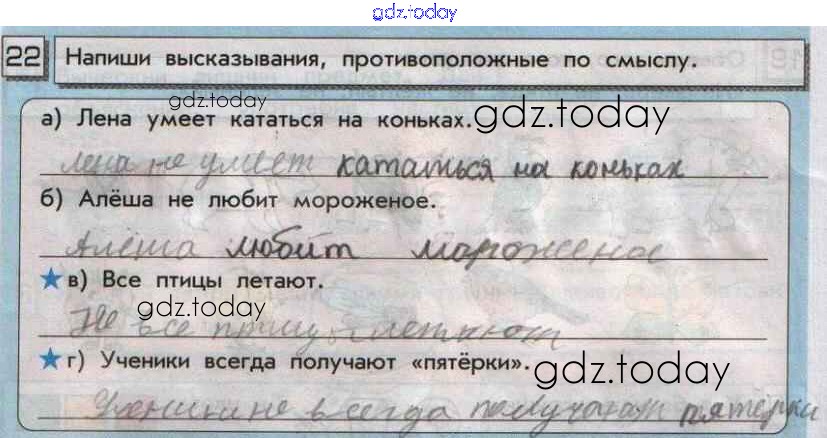 gdz.today
22 Напиши высказывания, противоположные по смыслу.
gdz.today
а) Лена умеет кататься на коньках. gdz.today
лена не умеет кататься на коньках
б) Алёша не любит мороженое.
Алёша любит мороженое
в) Все птицы летают.
gdz.today
Не все птицы летают
г) Ученики всегда получают «пятёрки».
gdz.today
Ученики не всегда получают пятёрки